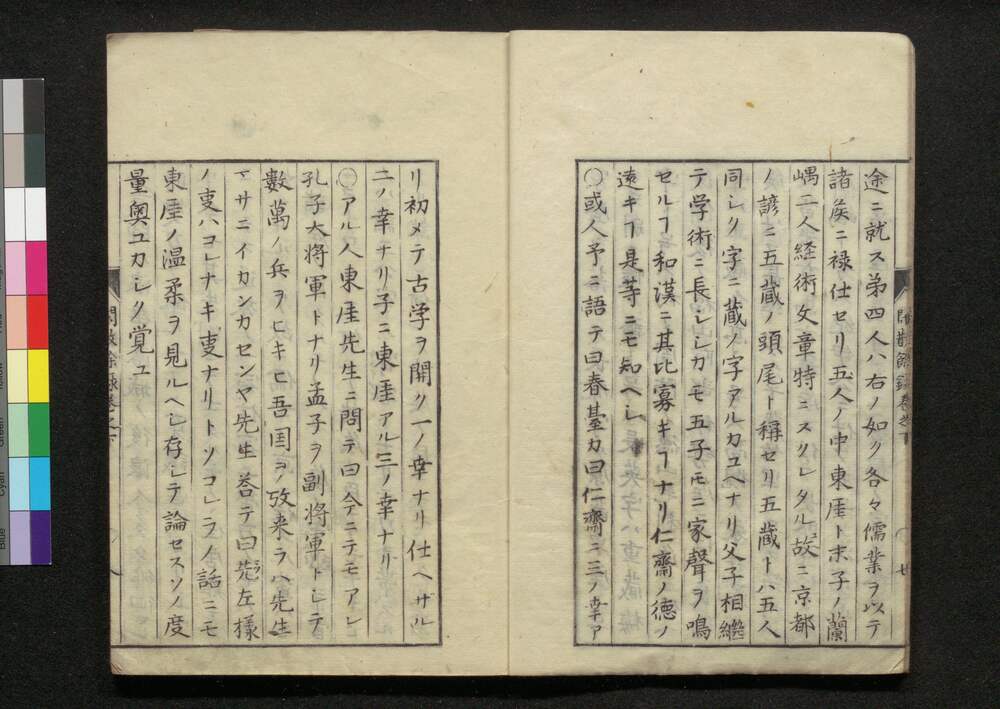 途ニ就ス第四人ハ右ノ如ク各々儒業ヲ以テ
諸矦ニ禄仕セリ五人ノ中東厓ト末子ノ蘭
嵎二人経術文章特ニスクレタル故ニ京都
ノ諺ニ五蔵ノ頭尾ト稱セリ五蔵トハ五人
同シク字ニ蔵ノ字アルカユヘナリ父子相繼
テ学術ニ長シシカモ五子圧ニ家聲ヲ鳴
セルヿ和漢ニ其比寡キヿナリ仁齋ノ德ノ
遠キヿ是等ニモ知ヘシ
○或人予ニ語テ曰春臺カ曰仁齋ニ三ノ幸ア
リ初メテ古学ヲ開ク一ノ幸ナリ仕ヘザル
二ノ幸ナリ子ニ東厓アル三ノ幸ナリ
○アル人東厓先生ニ問テ曰今ニテモアレ
孔子大将軍トナリ孟子ヲ副将軍トシテ
數萬ノ兵ヲヒキヒ吾国ヲ攻来ラハ先生
マサニイカンカセンヤ先生荅テ曰先左樣
ノ叓ハコレナキ叓ナリトソコレラノ話ニモ
東厓ノ温柔ヲ見ルヘシ存シテ論セスソノ度
量奥ユカシク覚ユ
閒散餘錄巻之下
廿